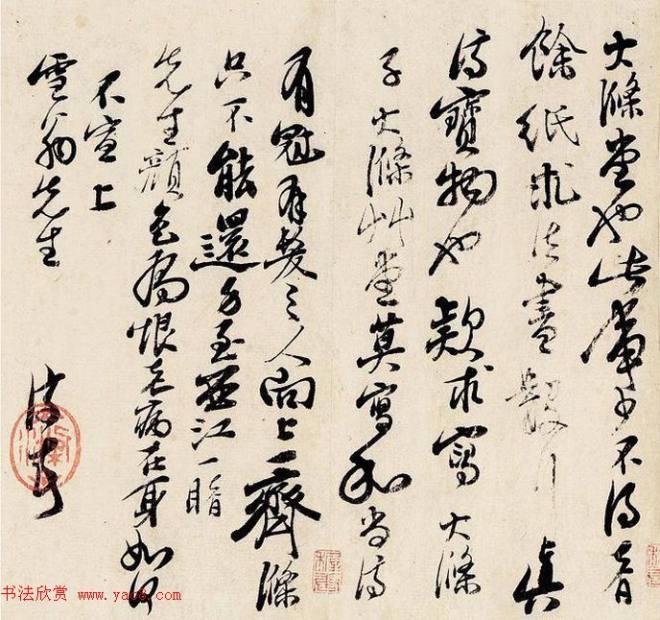 大滌堂也此事少不得者
餘紙求法書數行真
濟寶物也款求寫大滌
子大滌艸堂莫寫和尚濟
有冠有髮之人向上一齊滌
只不能還身至西江一睹
先生顏色為恨老病在身如何
不宣上
雪翁先生
濟頓首
书法欣赏 www.yac8.com